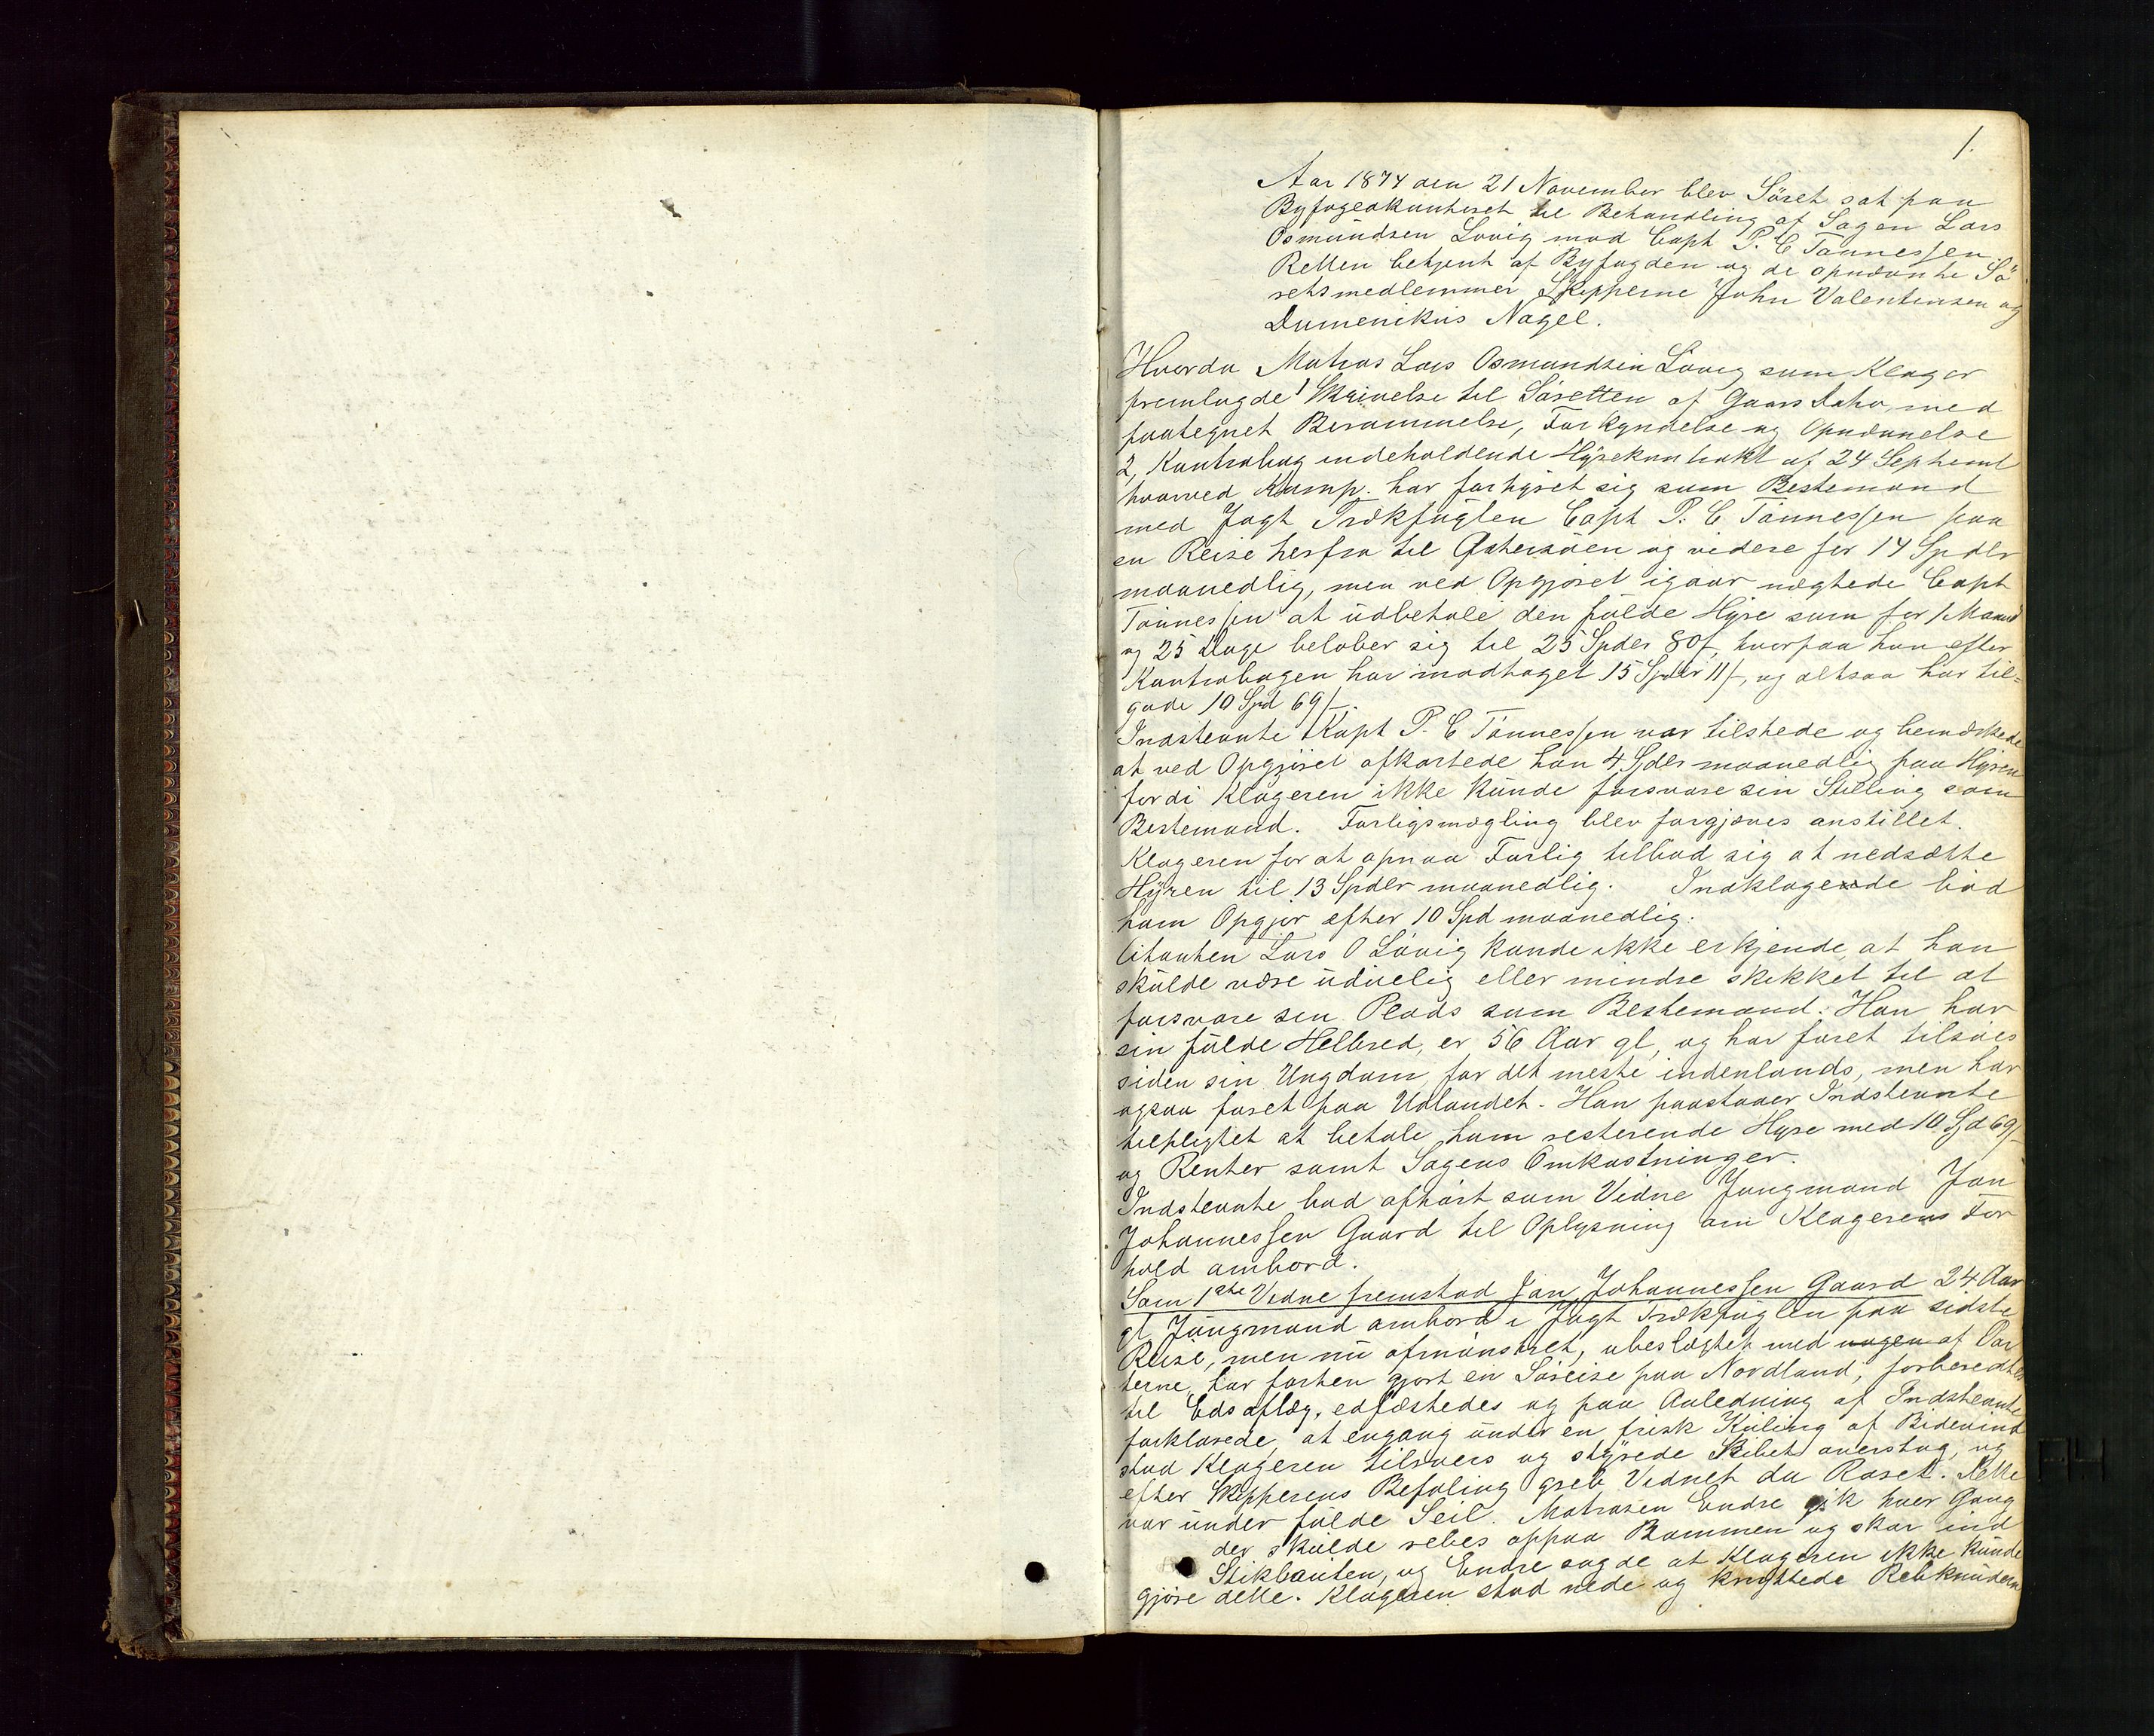 1.
Aar 1874 den 21 November blev Söret sat paa
Byfogedkontoret til Behandling af Sagen Lars
Osmundsen Lövig mod Capt P. C Tönnessen
Retten betjent af Byfogden og de opnævnte Sö
retsmedlemmer Skipperne John Valentinsen og
Dumenikus Nagel.
Hvorda Matros Lars Osmundsen Lövig som Klager
fremlagde 1 Skrivelse til Söretten af Gaars Dato, med
paategnet Berammelse, Forkyndelse og Opnævnelse
2, Kontrabog indeholdende Hyrekontrakt af 24 Septembr
hvorved Komp. har forhyret sig som Bestemand
med Jagt Trækfuglen Capt P. C Tönnessen paa
en Reise herfra til Östersöen og videre for 14 Spdlr
maanedlig, men ved Opgjöret igaar nægtede Capt
Tönnessen at udbetale den fulde Hyre som for 1 Maaned
og 25 Dage belöber sig til 25 Spdlr 80 s, hvorpaa han efter
Kontrabogen har modtaget 15 Spdlr 11 s, og altsaa har til=
gode 10 Spd 69 s.
Indstevnte Kapt P. C Tönnessen var tilstede og bemærkede
at ved Opgjöret afkortede han 4 Spdlr maanedlig paa Hyren
fordi Klageren ikke kunde forsvare sin Stilling som
Bestemand. Forligsmægling blev forgjæves anstillet.
Klageren for at opnaa Forlig tilbod sig at nedsætte
Hyren til 13 Spdlr maanedlig. Indklagede böd
ham Opgjör efter 10 Spd maanedlig.
Citanten Lars O Lövig kunde ikke erkjende, at han
skulde være uduelig eller mindre skikket til at
forsvare sin Plads som Bestemand. Han har
sin fulde Helbred, er 56 Aar gl, og har faret tilsöes
siden sin Ungdom, for det meste indenlands, men har
ogsaa faret paa Udlandet. Han paastaaer Indstevnte
tilpligtet at betale ham resterende Hyre med 10 Spd 69 s
og Renter samt Sagens Omkostninger.
Indstevnte bad afhört som Vidne Jungmand Jan
Johannessen Gaard til Oplysning om Klagerens For
hold ombord.
Som 1ste Vidne fremstod Jan Johannessen Gaard 24 Aar
gl, Jungmand ombord i Jagt Trækfuglen paa sidste
Reise, men nu afmönstret, ubeslægtet med nogen af Par
terne, har forhen gjort en Söreise paa Nordland, forberedtes
til Edsaflæg. edfæstedes og paa Anledning af Indstevnte
forklarede, at engang under en frisk Kuling af Bidevind
stod Klageren tilroers og styrede Skibet overstag, og
efter Skipperens Befaling greb Vidnet da Roret. Dette
var under fulde Seil. Matrosen Endre gik hver Gang
der skulde rebes oppaa Bommen og skar ind
Stikbauten, og Endre sagde at Klageren ikke kunde
gjöre dette. Klageren stod nede og knyttede Rebknuderne